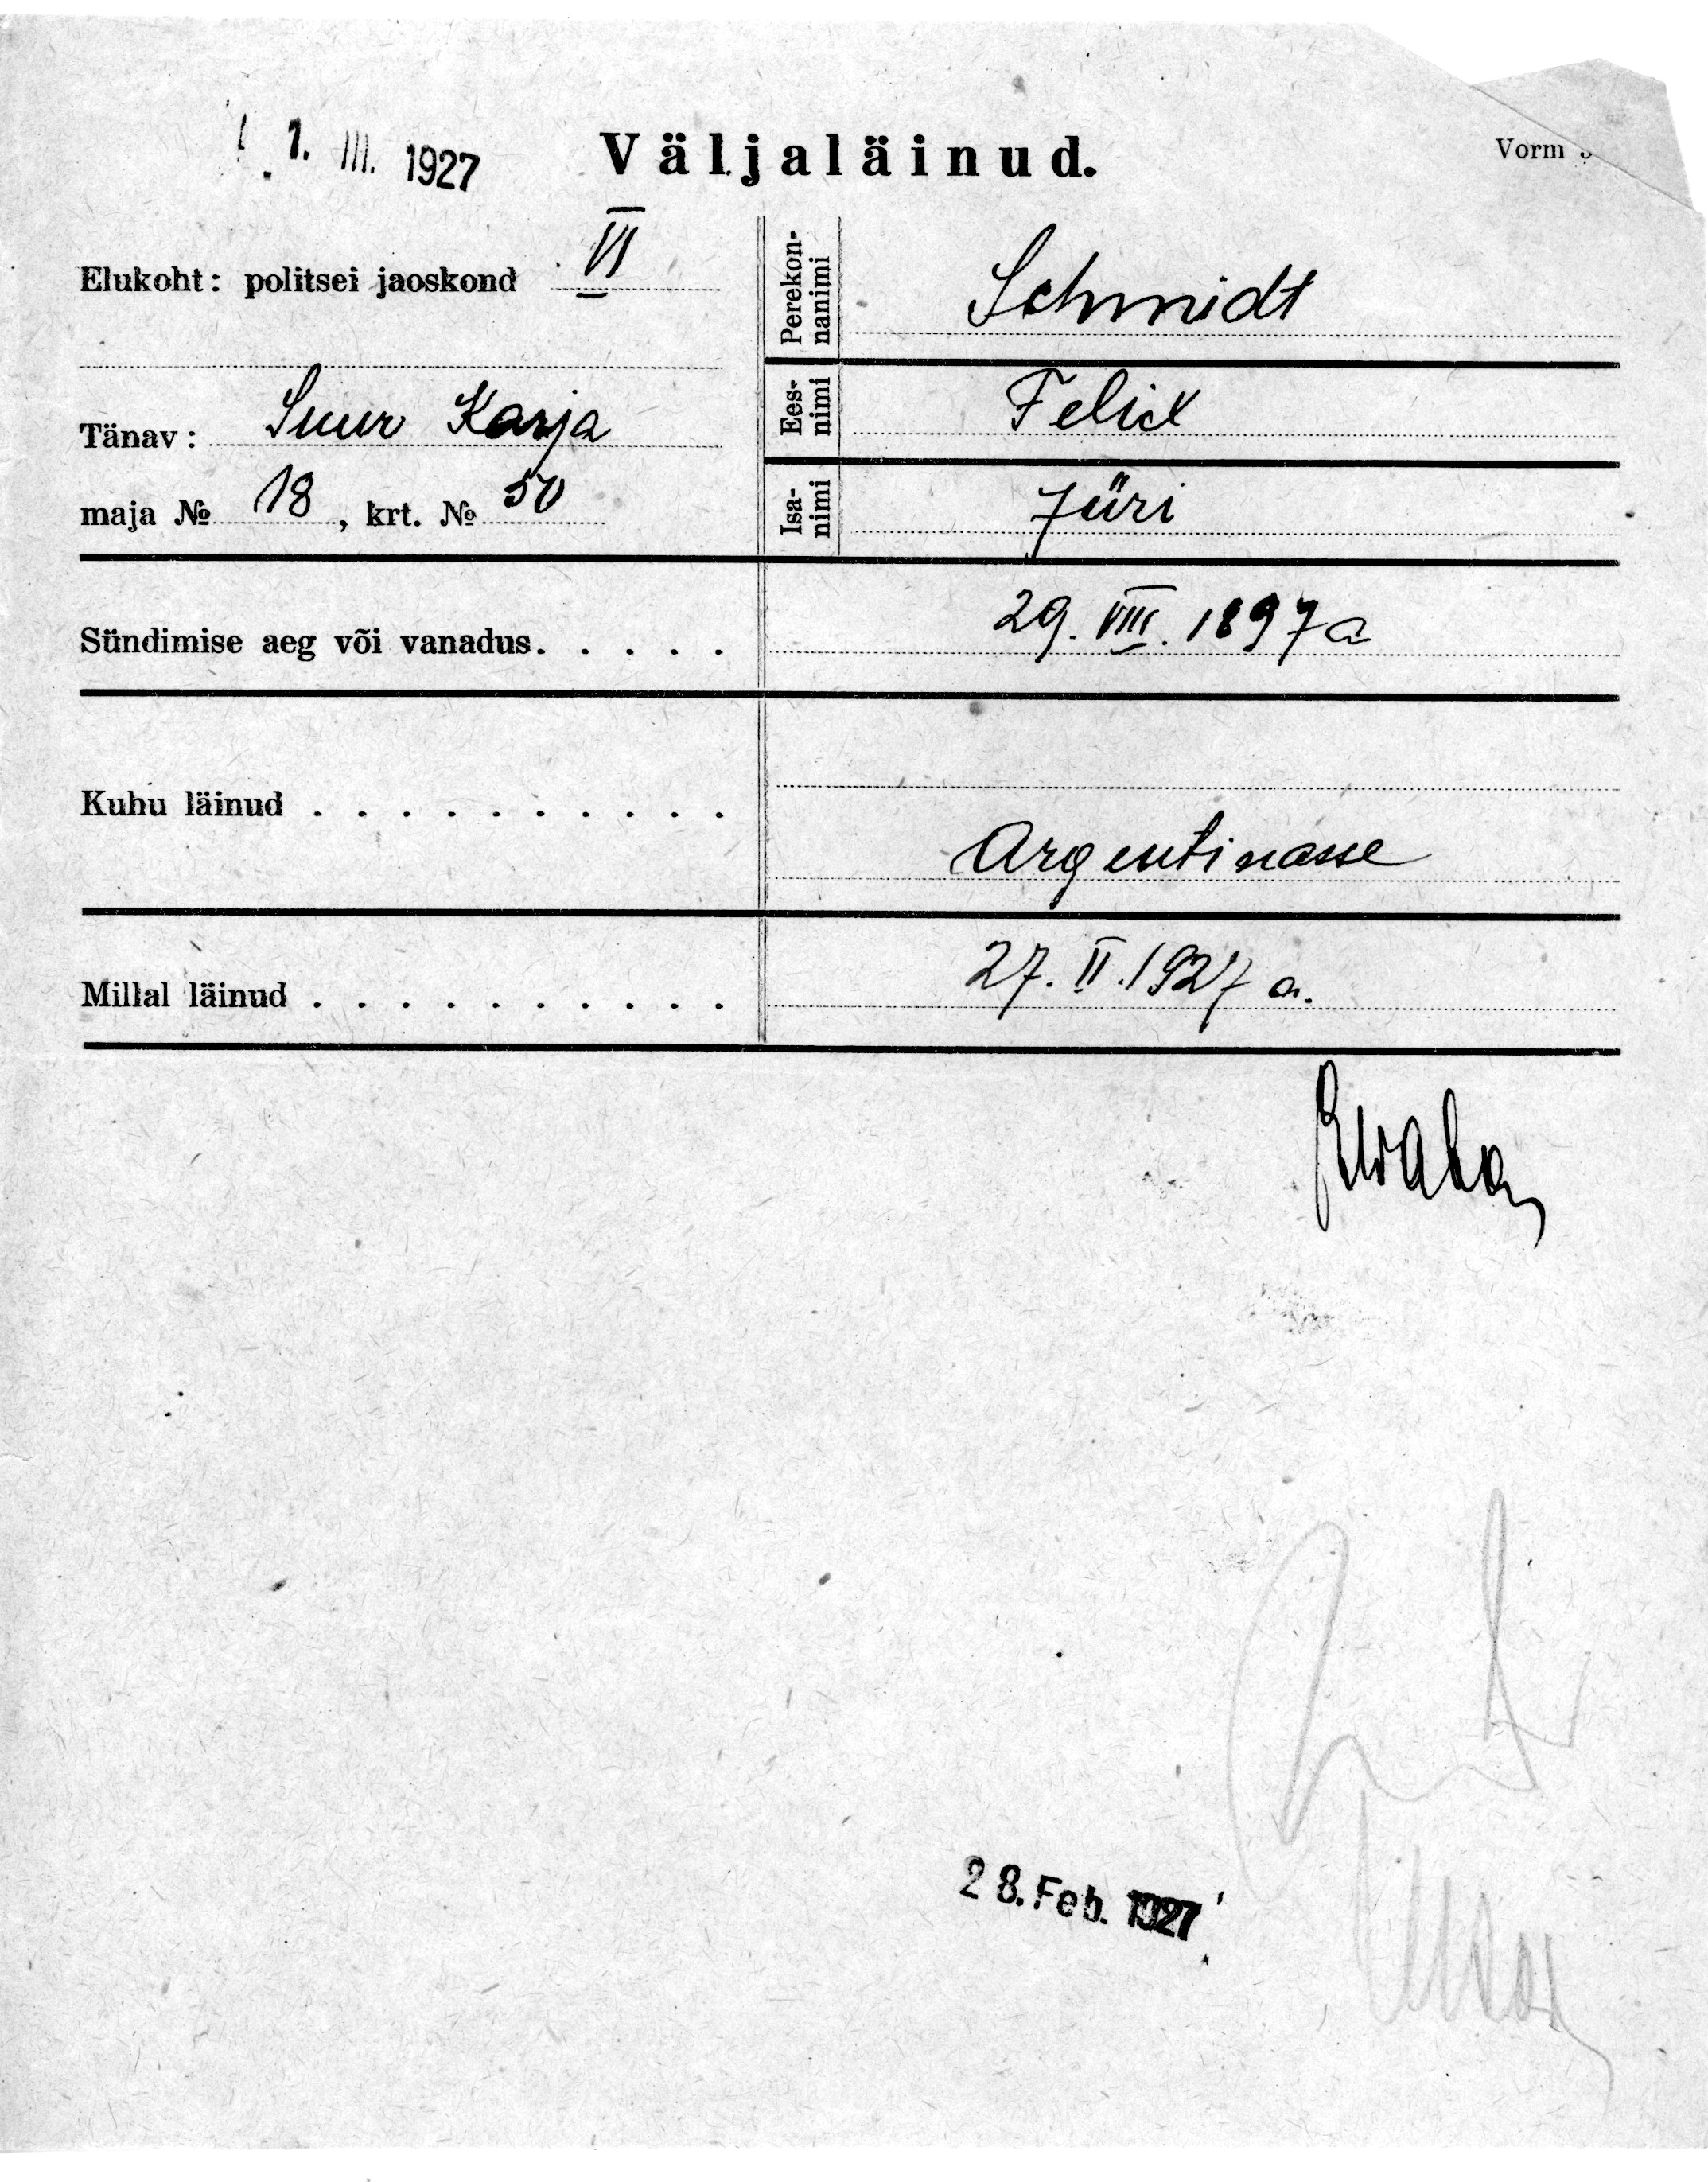 1. III. 1927
Väljaläinud.
Vorm
Elukoht: politsei jaoskond VI
Tänav: Suur Karja
maja № 18, krt. № 50
Perekon-
nanimi
Schmidt
Ees-
nimi
Felix
Isa-
nimi
Jüri
Sündimise aeg või vanadus. . . . . 29. VIII. 1897 a
Kuhu läinud . . . . . . . . . . Argentinasse
Millal läinud . . . . . . . . . . 27. II. 1927 a.
28. Feb. 1927